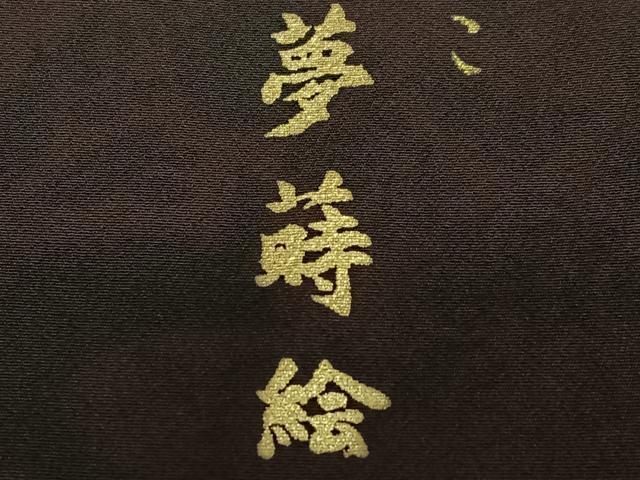 こ
夢蒔絵